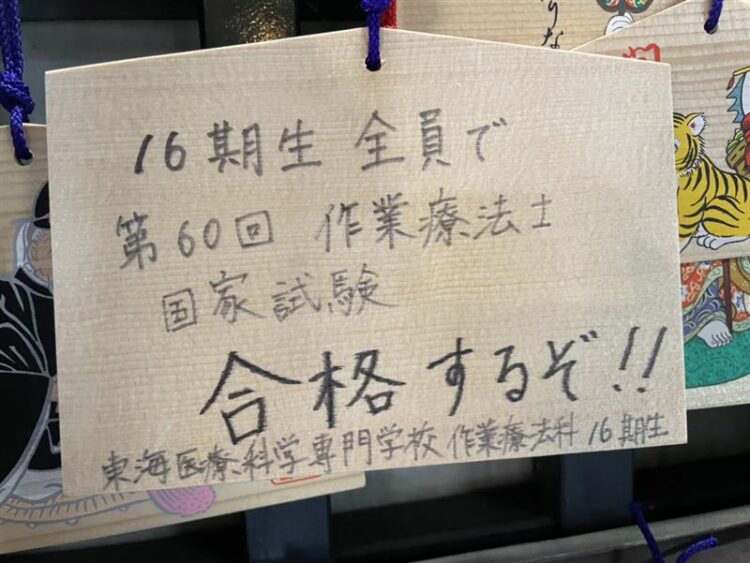 16期生 全員で
第60回 作業療法士
国家試験
合格するぞ!!
東海医療科学専門学校 作業療法科 16期生